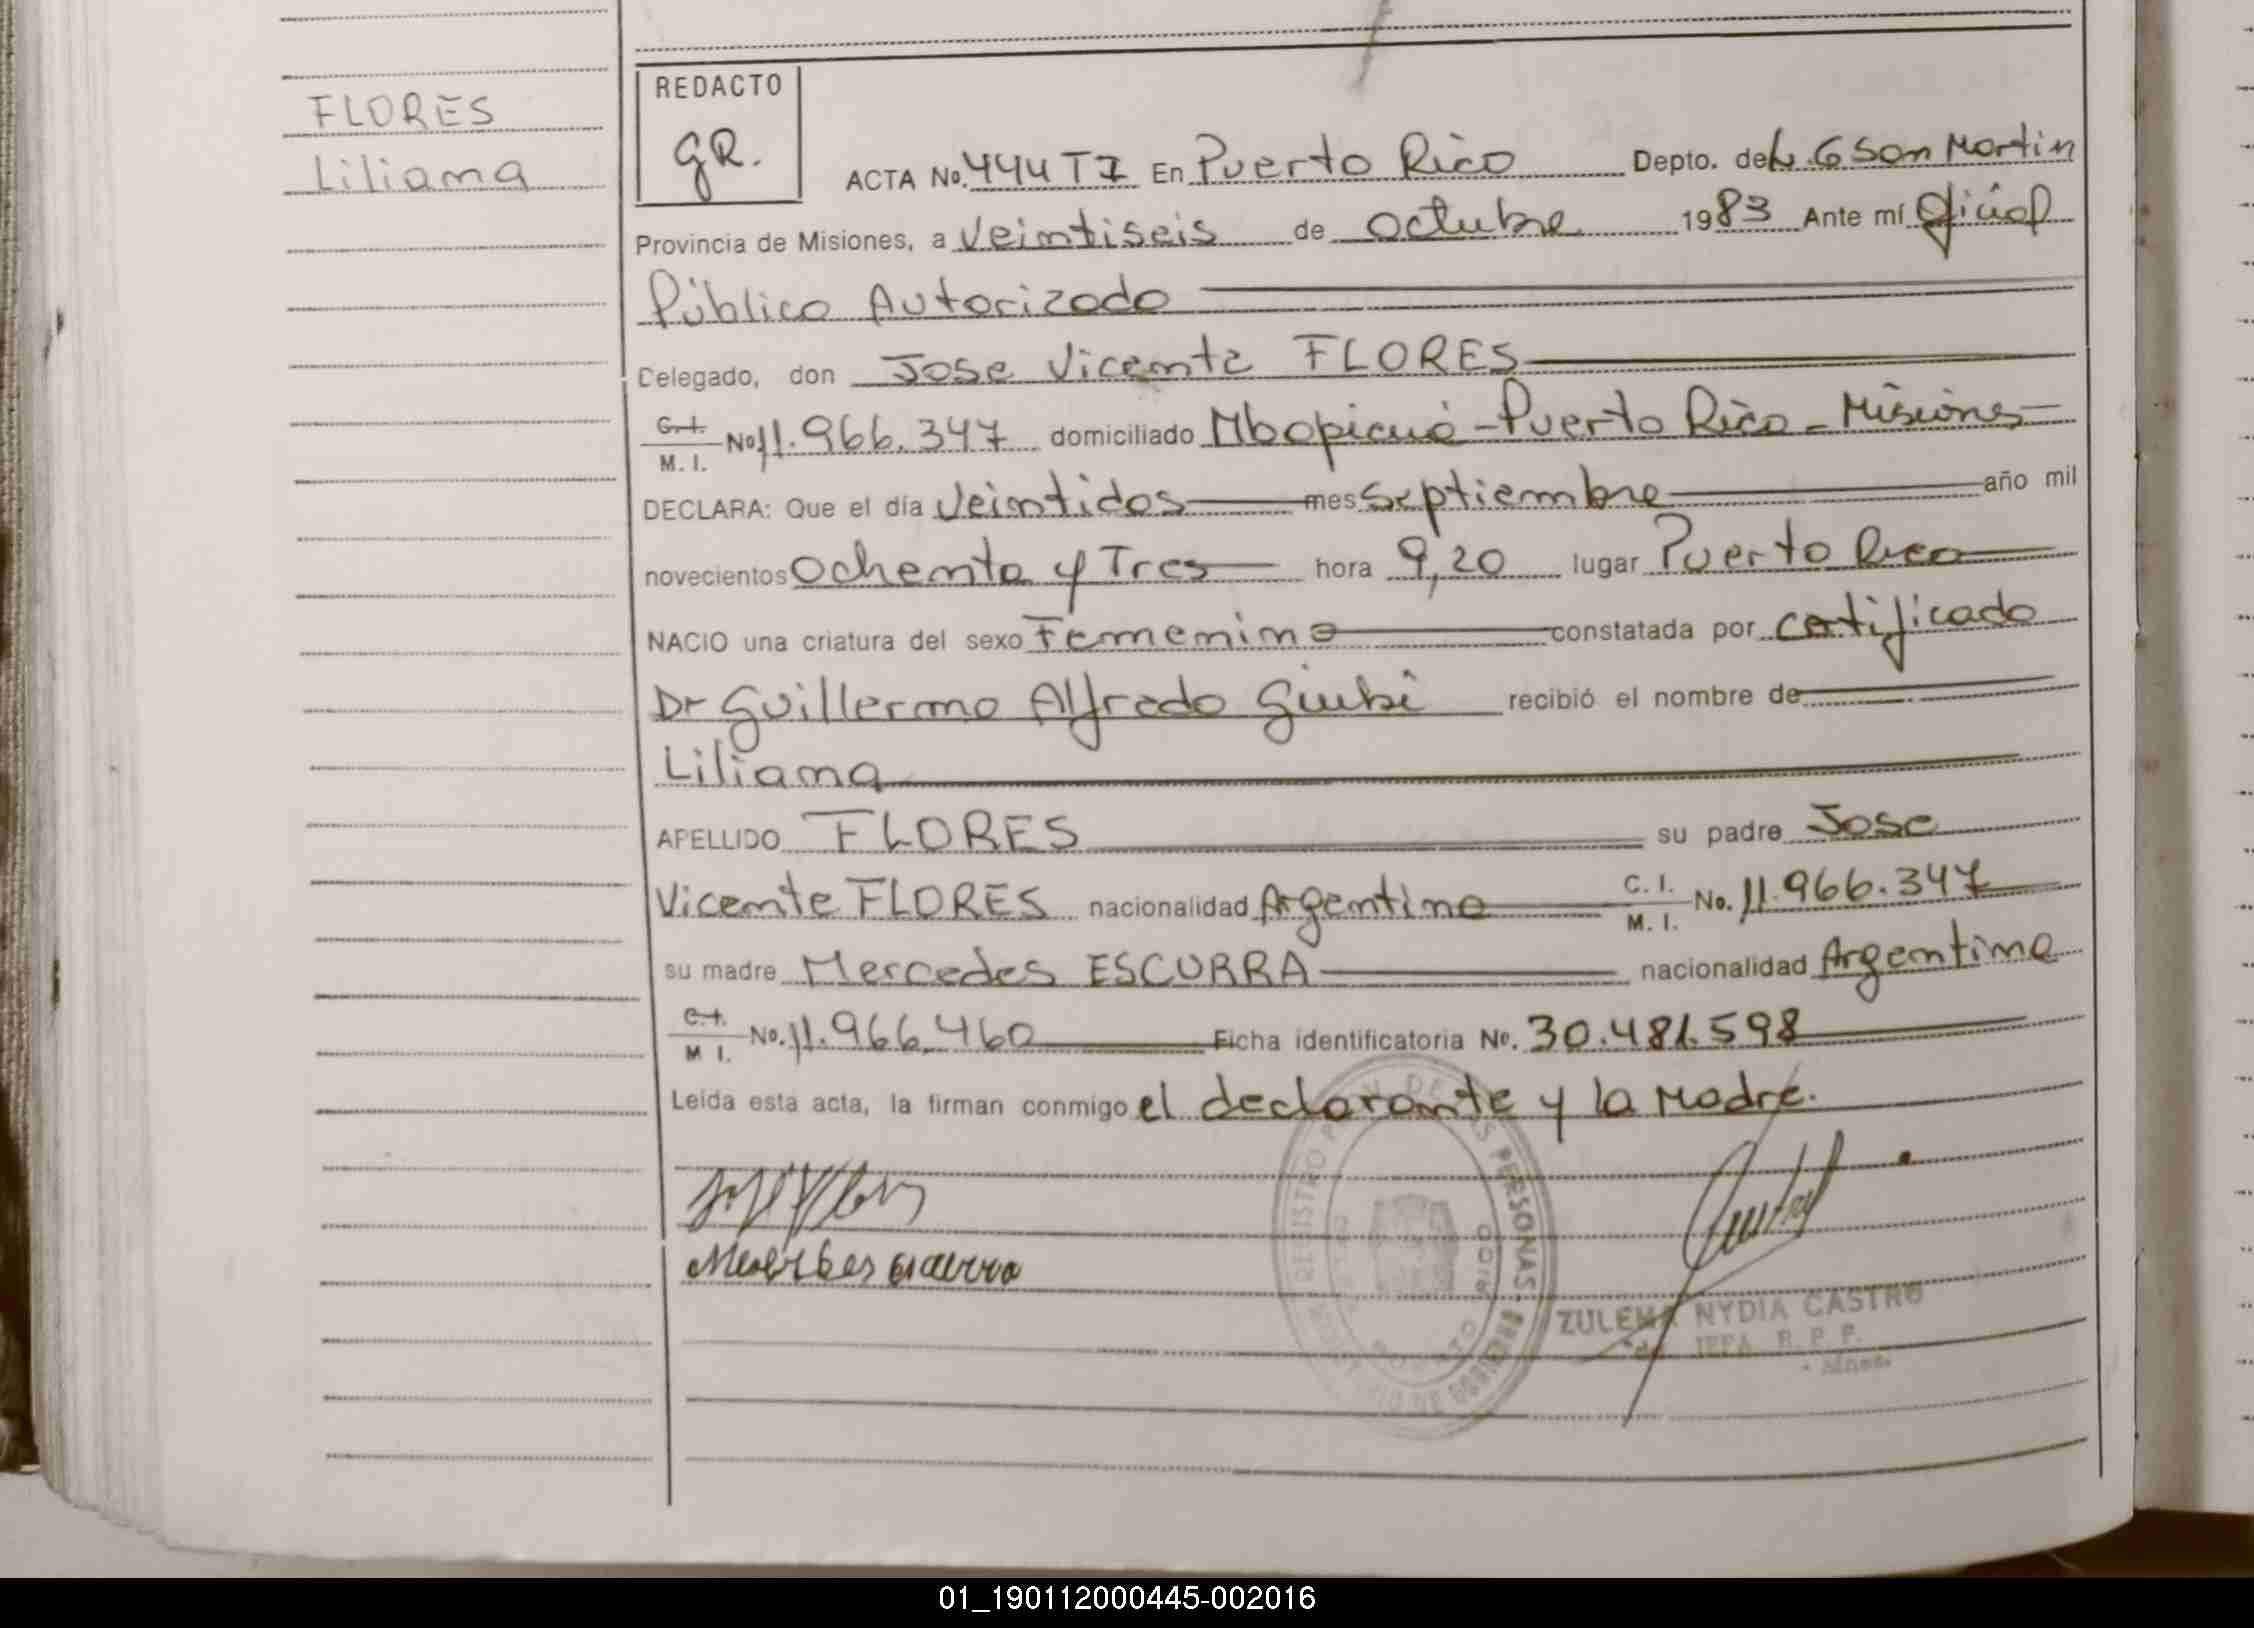 FLORES
Liliana
REDACTO
GR.
ACTA No. 444 T I En Puerto Rico Depto. de L. G San Martin
Provincia de Misiones, a veintiseis de octubre 1983 Ante mí Oficial
Público Autorizado
Celegado, don Jose Vicente FLORES
C.I. M. I. No 11.966.347 domiciliado Mbopicuá - Puerto Rico - Misiones
DECLARA: Que el día veintidos mes septiembre año mil
novecientos ochenta y Tres hora 9,20 lugar Puerto Rico
NACIO una criatura del sexo Femenino constatada por certificado
Dr Guillermo Alfredo recibió el nombre de
Liliana
APELLIDO FLORES su padre Jose
Vicente FLORES nacionalidad Argentina C. I. M. I. No. 11.966.347
su madre Mercedes ESCURRA nacionalidad Argentina
C.I. M I. No. 11.966.460 Ficha identificatoria No. 30.481.598
Leída esta acta, la firman conmigo el declarante y la Madre.
ZULEMA NYDIA CASTRO
JEFA R. P. P.
01_190112000445-002016